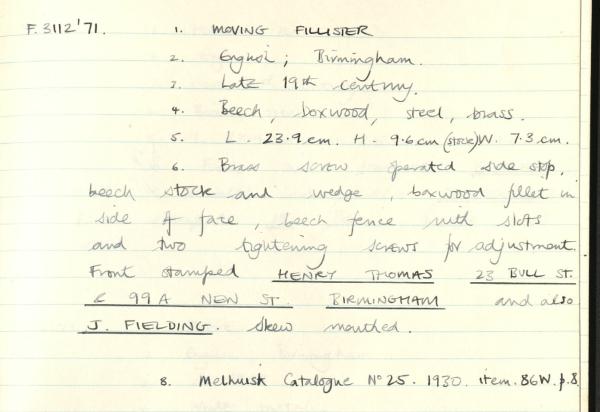 F.3112'71. 1. MOVING FILLISTER
2. English; Birmingham.
3. Late 19th century.
4. Beech, boxwood, steel, brass.
5. L. 23.9cm. H. 9.6cm (stock) W. 7.3cm.
6. Brass screw operated side stop,
beech stock and wedge, boxwood fillet in
side of face, beech fence with slots
and two tightening screws for adjustment.
Front stamped HENRY THOMAS 23 BULL ST.
& 99A NEW ST. BIRMINGHAM and also
J. FIELDING. Skew mouthed.
8. Melhuish Catalogue No 25. 1930. item. 86W. p.8